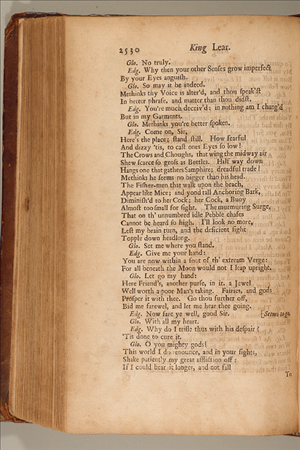 2530 King Lear.
Glo. No truly.
Edg. Why then your other Senses grow imperfect
By your Eyes anguish.
Glo. So may it be indeed.
Methinks thy Voice is alter'd, and thou speak'st
In better phrase, and matter than thou didst.
Edg. You're much deceiv'd: in nothing am I chang'd
But in my Garments.
Glo. Methinks you're better spoken.
Edg. Come on, Sir,
Here's the place; stand still. How fearful
And dizzy 'tis, to cast ones Eyes so low!
The Crows and Choughs, that wing the midway air
Shew scarce so gross as Beetles. Half way down
Hangs one that gathers Samphire; dreadful trade!
Methinks he seems no bigger than his head.
The Fisher-men that walk upon the beach,
Appear like Mice; and yond tall Anchoring Bark,
Diminish'd to her Cock; her Cock, a Buoy
Almost too small for sight. The murmuring Surge,
That on th' unnumbred idle Pebble chafes
Cannot be heard so high. I'll look no more,
Lest my brain turn, and the deficient sight
Topple down headlong.
Glo. Set me where you stand.
Edg. Give me your hand:
You are now within a foot of th' extream Verge:
For all beneath the Moon would not I leap upright.
Glo. Let go my hand:
Here Friend's, another purse, in it, a Jewel
Well worth a poor Man's taking. Fairies, and gods
Prosper it with thee. Go thou further off,
Bid me farewel, and let me hear thee going.
Edg. Now fare ye well, good Sir. [Seems to go.
Glo. With all my heart.
Edg. Why do I trifle thus with his despair?
'Tis done to cure it.
Glo. O you mighty gods!
This world I do renounce, and in your sights,
Shake patiently my great affliction off:
If I could bear it longer, and not fall
To